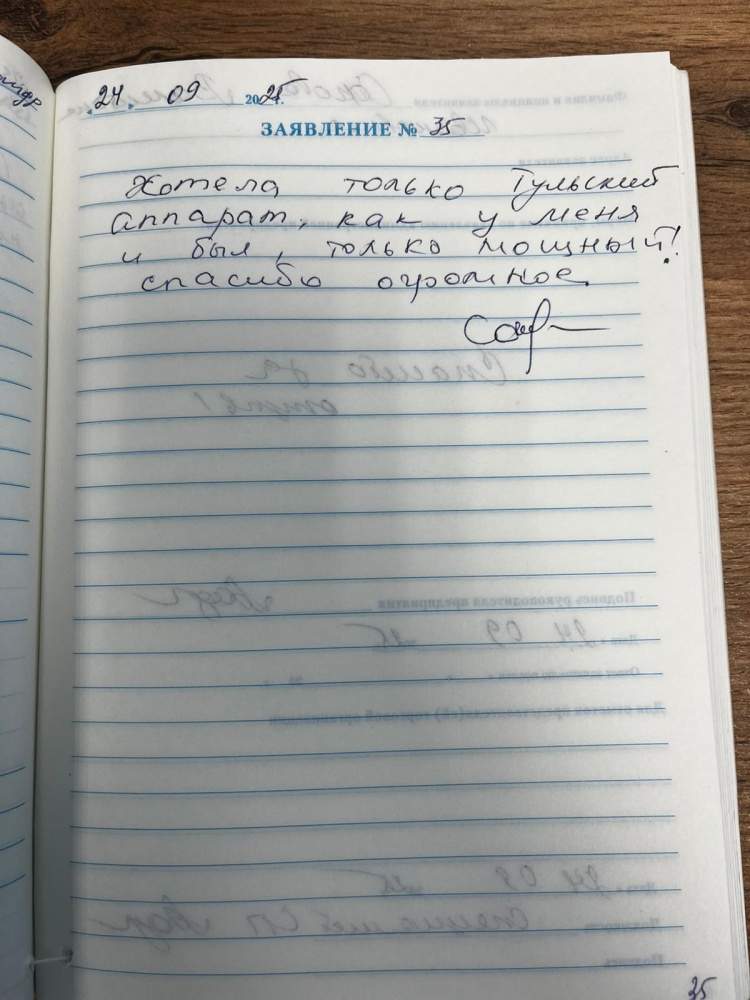 24. 09 2025г.
ЗАЯВЛЕНИЕ № 35
Хотела только Тульский
аппарат, как у меня
и был, только мощный!
спасибо огромное.
35